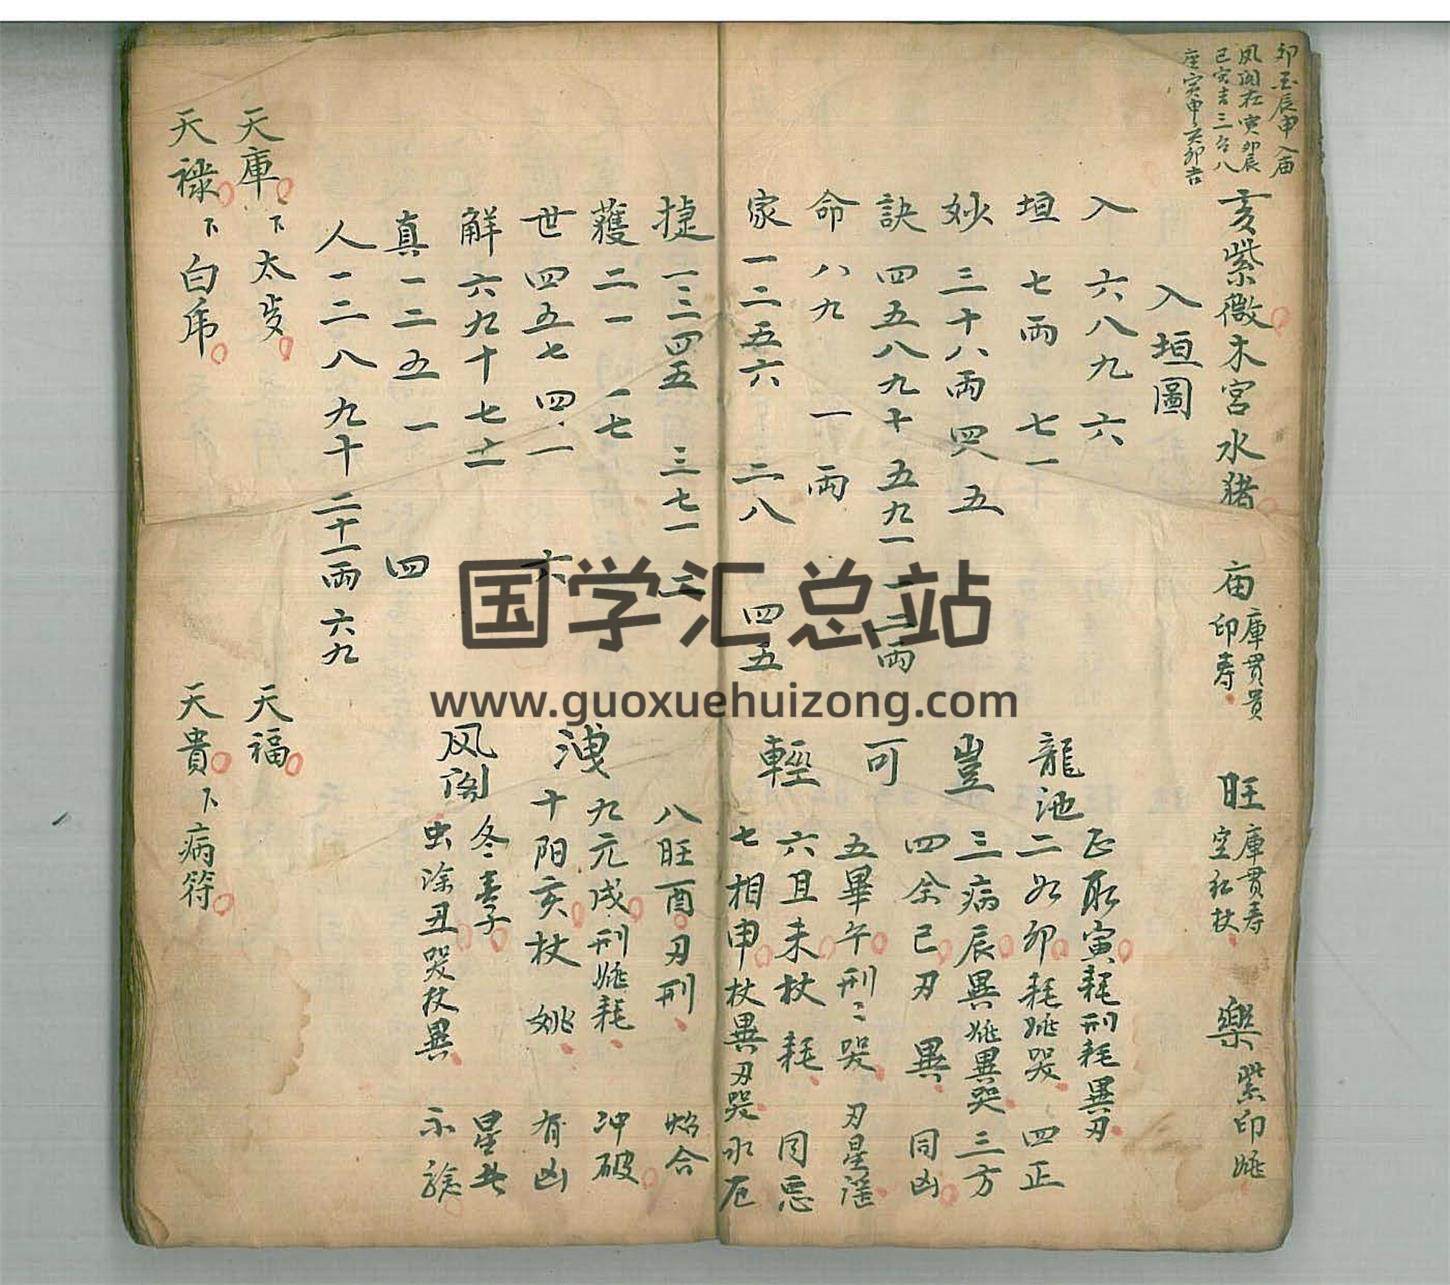 卯丑辰申入庙
凤阁在寅卯辰
巳宫吉三台八
座寅申亥卯吉
亥紫微木宫水猪
庙
庫贯贵
印寿
旺
庫贯寿
空私杖
樂
紫印姚
入垣圖
入 六八九 六
垣 七兩 七一
妙 三十八兩 四 五
訣 四五八九十 五九一 一二兩
命 八九 一 兩
家 一二五六 二八 四五
捷 一三四五 三七一 二
蒦 二一 一七
世 四五七 四一 六
解 六九十 七十一
真 一二五 一 四
人 一二八九十 二十一兩 六九
龍池
豈
可
輕
洩
风阁
正 寅耗刑耗異刃
二 卯耗姚哭 四正
三病辰異姚異哭 三方
四余巳刃 異 同凶
五畢午刑二哭 刃星
六且未杖 耗 同恶
七相申杖異刃哭 水厄
八旺酉刃刑 煞合
九元戍刑姚耗 冲破
十阳亥杖 姚 有凶
冬子 星共
虫涂丑哭杖異 示
天庫下太岁
天福
天禄下白虎
天貴下病符
国学汇总站
www.guoxuehuizong.com